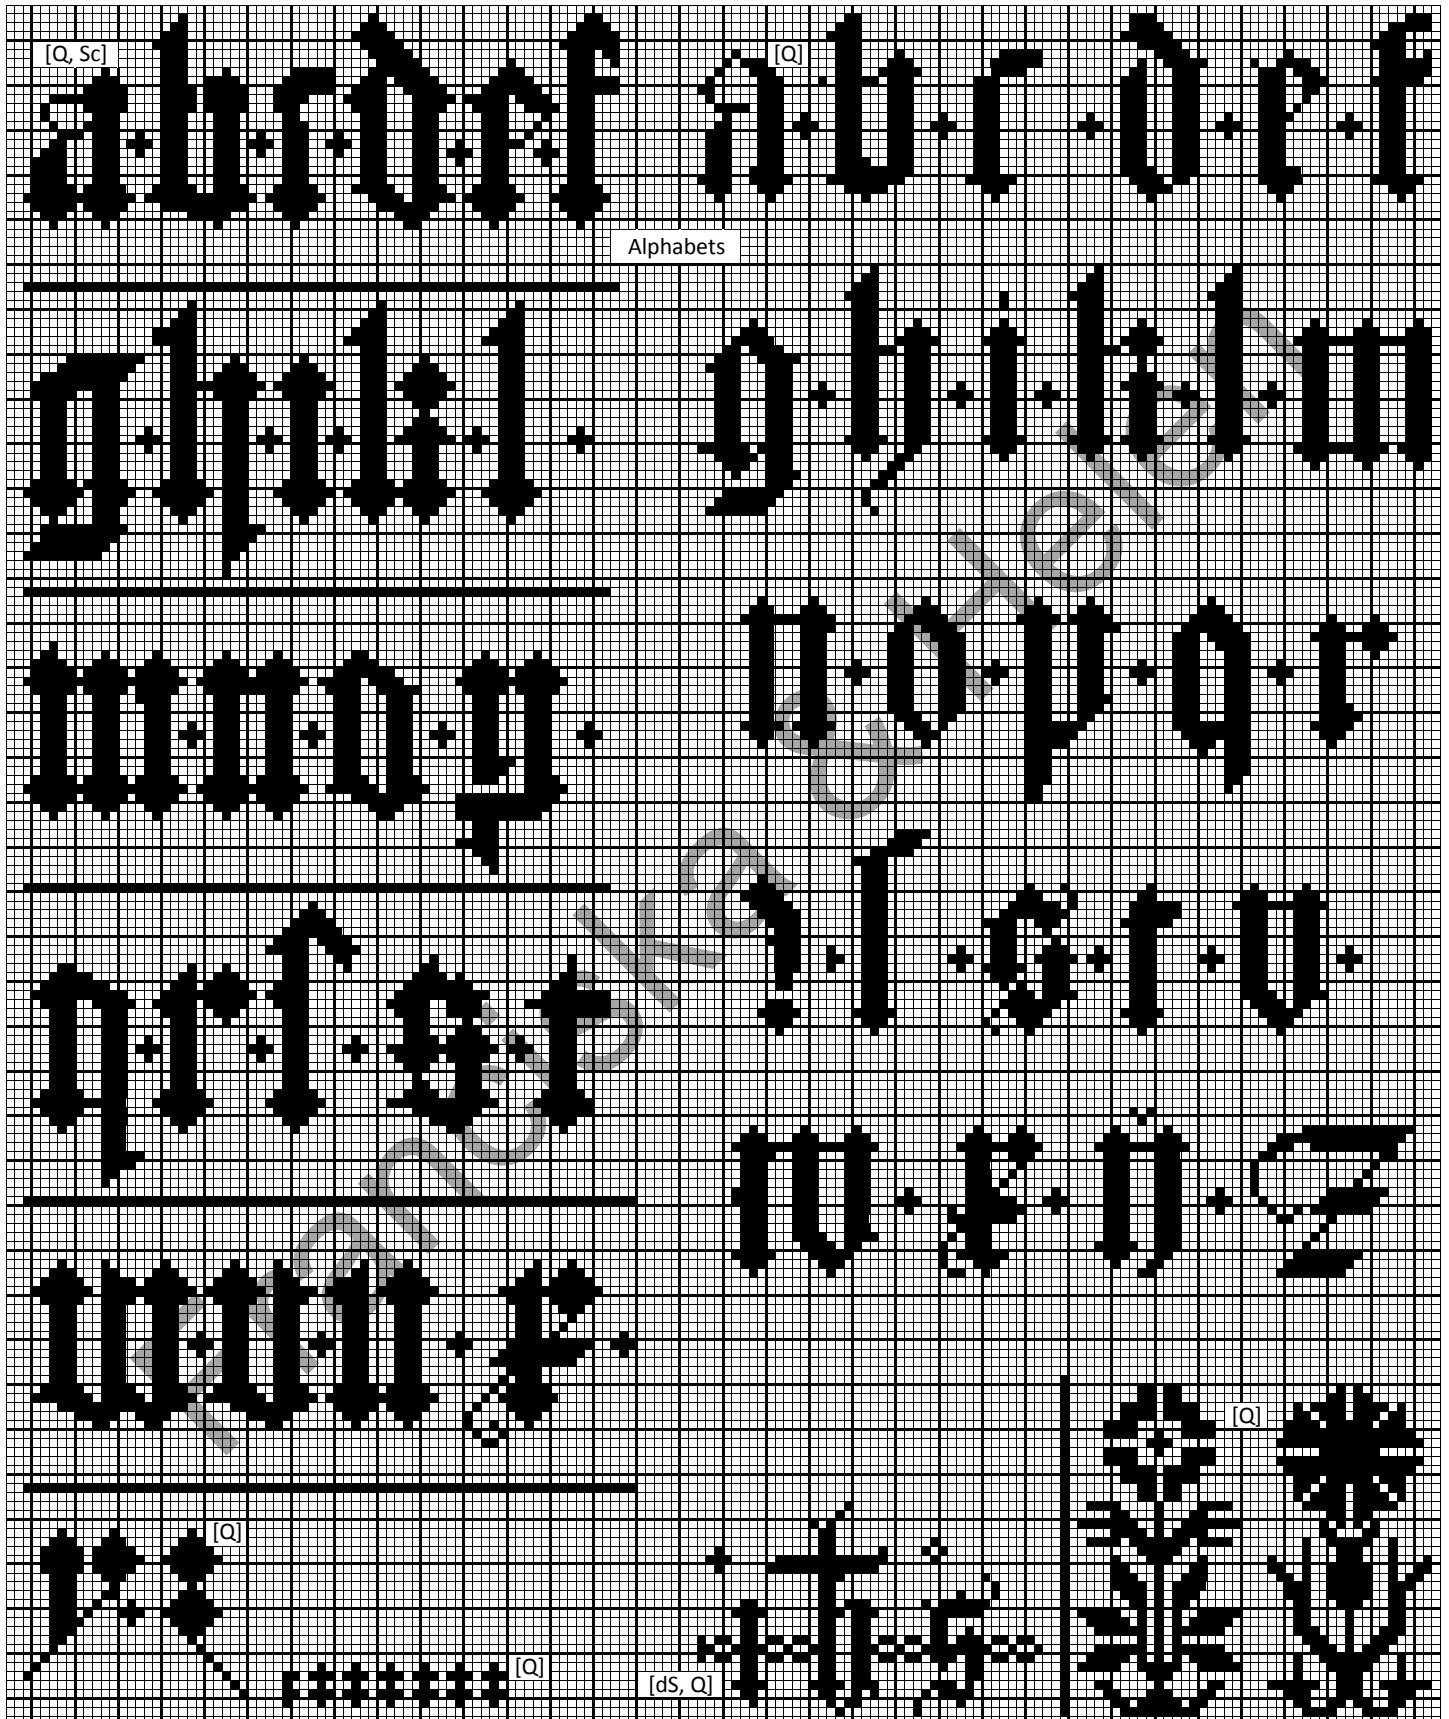 [Q, Sc] [Q]
a b r d e f
a b r d e f
Alphabets
g h i k l
g h i k l m
m n o p
n o p q r
q r ſ s t
ſ s t v
w x y z
[Q]
[Q]
[Q]
[dS, Q]
ihs
Franciska & Helen